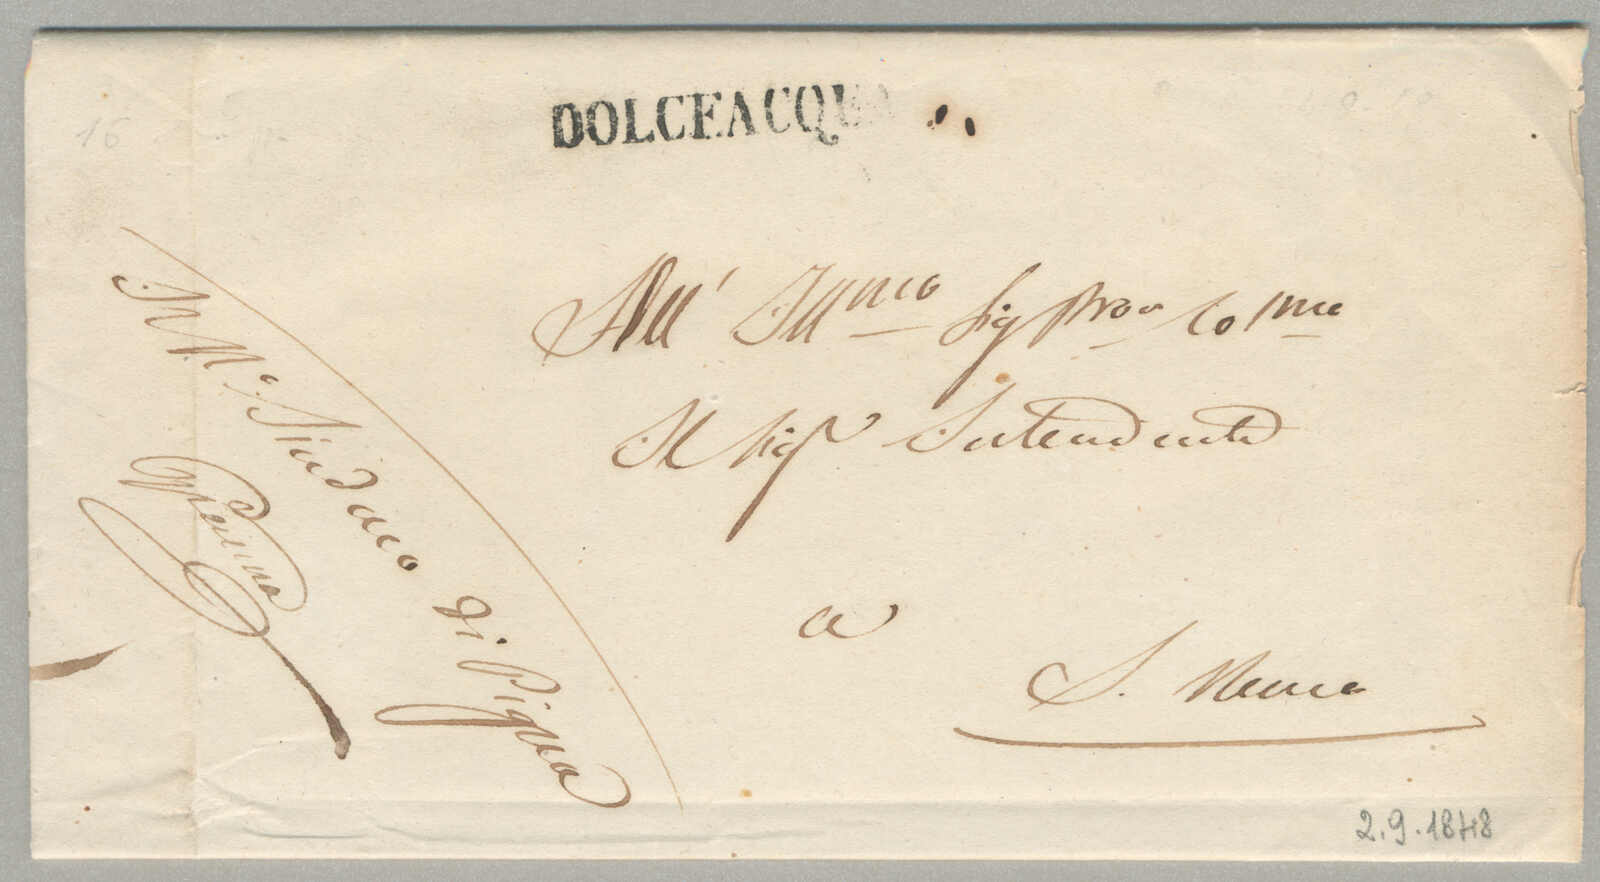 DOLCEACQUA
All' Ill.mo Sig Pron Col.mo
Il Sig.r Intendente
a
S. Remo
Il V.e Sindaco di Pigna
2.9.1848